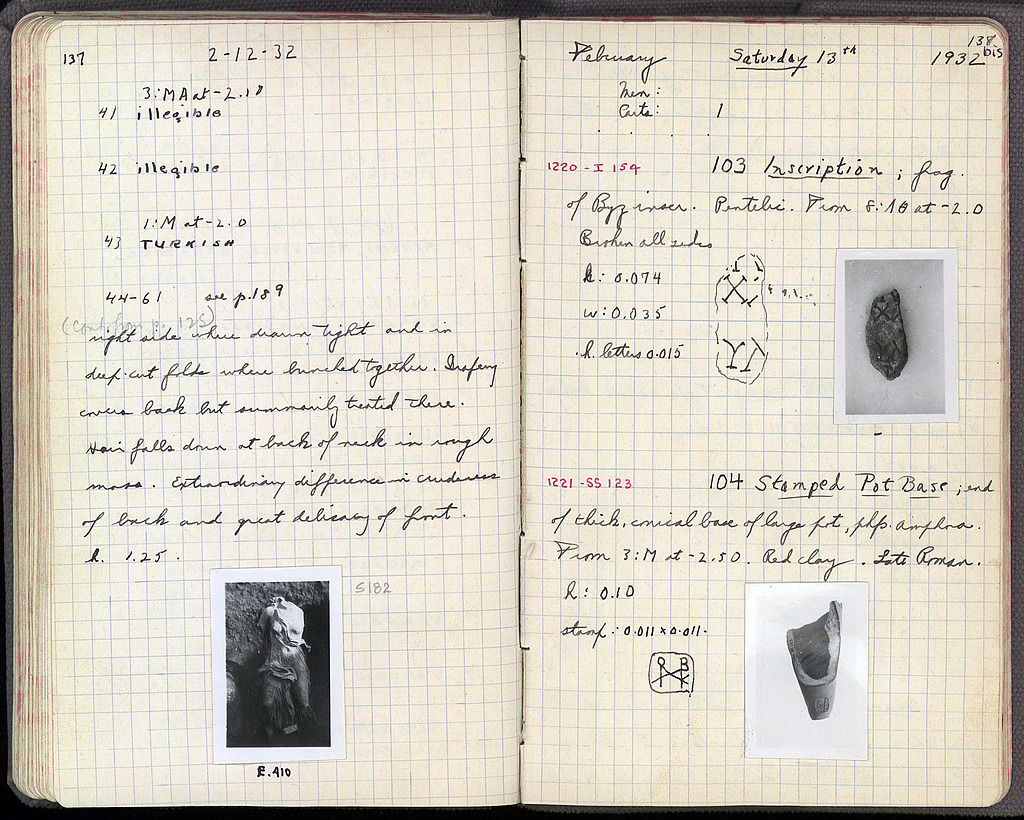 137
2-12-32
3:MA at -2.10
41 illegible
42 illegible
1:M at -2.0
43 TURKISH
44-61 see p.189
(Cont. from p. 125)
right side where drawn tight and in
deep-cut folds where bunched together. Drapery
covers back but summarily treated there.
Hair falls down at back of neck in rough
mass. Extraordinary difference in crudeness
of back and great delicacy of front.
h. 1.25.
S182
E.410
138 bis
February Saturday 13th 1932
Men:
Carts: 1
1220-I 154 103 Inscription; frag.
of Byz inscr. Pentelic. From 8:ΛΘ at -2.0
Broken all sides
h: 0.074
w: 0.035
h. letters 0.015
1221-SS 123 104 Stamped Pot Base; end
of thick, conical base of large pot, phps. amphora.
From 3:M at -2.50. Red clay. Late Roman.
h: 0.10
stamp: 0.011 x 0.011.